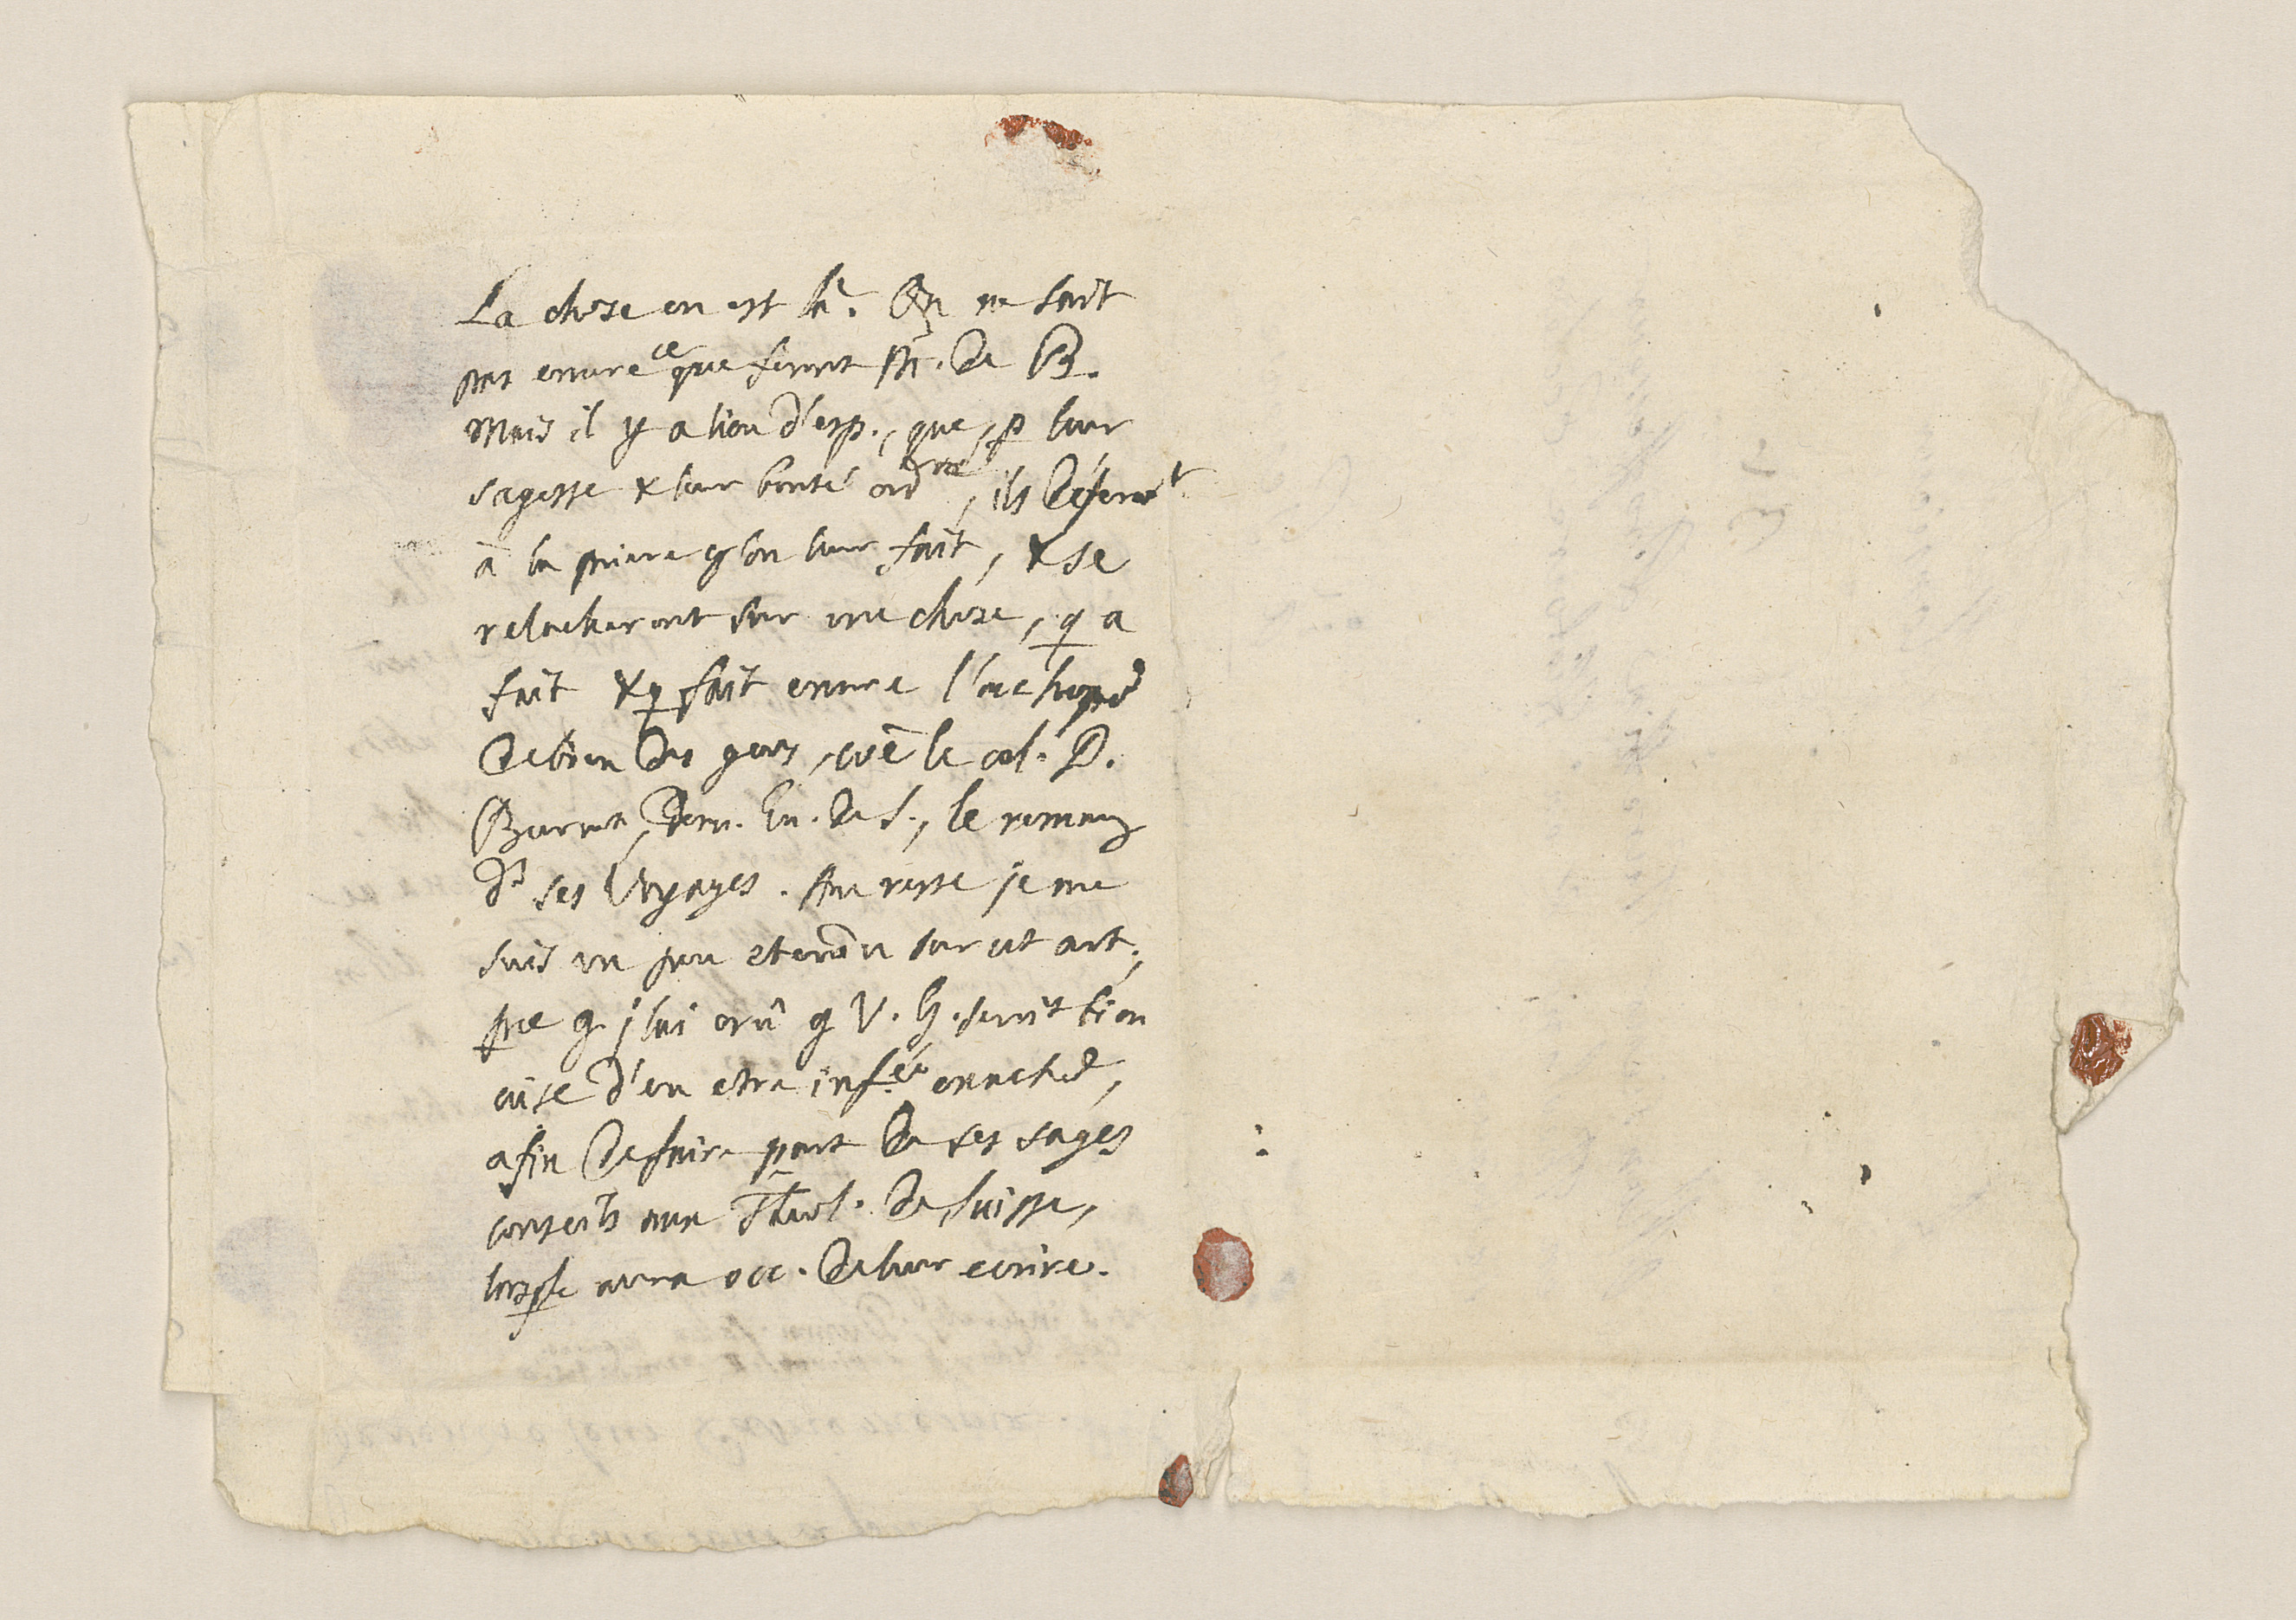 La chose en est là. On ne sait
pas encore ce que feront Mr. de B.
Mais il y a lieu d'esp., que, p leur
sagesse & leur bonté ordre, ils déferont
à la priere q lon leur fait, & se
relacheront sur une chose, q a
fait & q fait encore l'achopt
de bien des gens, coē le cel. D.
Burnet, Dern. Ev. de S., le remarq
ds ses Voyages. Au reste je me
suis un peu etendu sur cet art.,
pce q j'lui crû q V. h. seroit bien
aise d'en etre infée en ached,
afin de faire part de ses sages
conseils aux Theol. de Suisse,
lorsqle aura occ. de leur ecrire.